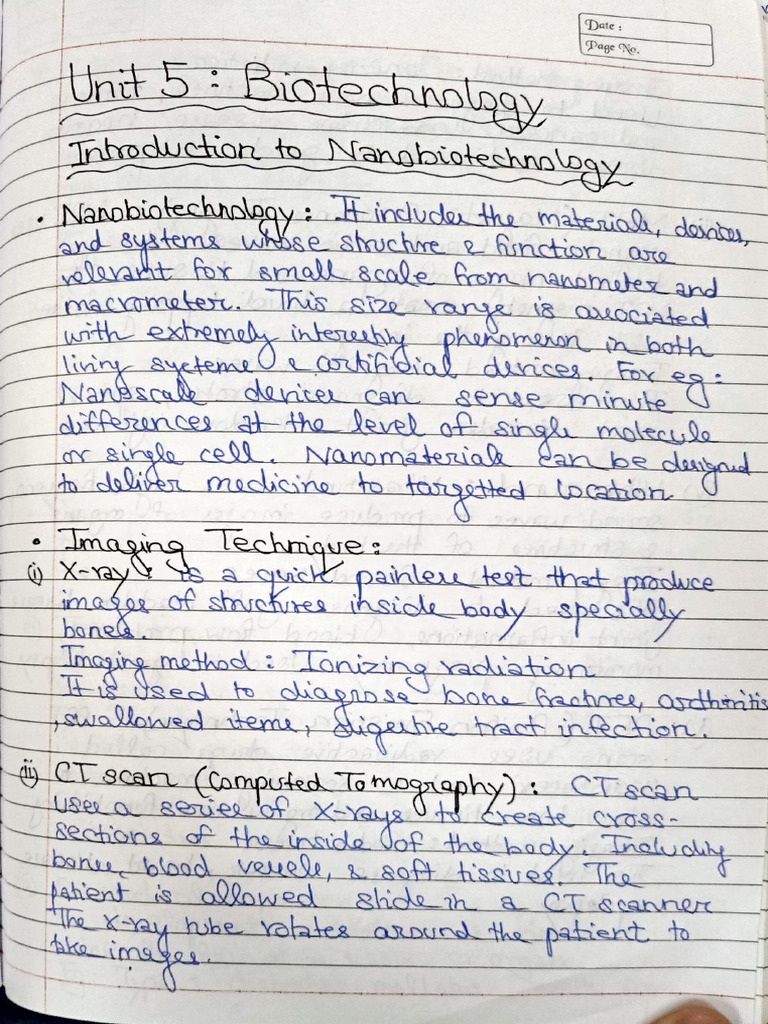 Date :
Page No.
Unit 5 : Biotechnology
Introduction to Nanobiotechnology
• Nanobiotechnology : It includes the materials, devices,
and systems whose structure & function are
relevant for small scale from nanometer and
macrometer. This size range is associated
with extremely interestily phenomenon in both
living systems & artificial devices. For eg :
Nanoscale devices can sense minute
differences at the level of single molecule
or single cell. Nanomaterials can be designed
to deliver medicine to targetted location.
• Imaging Technique :
(i) X-ray : is a quick painless test that produce
images of structures inside body specially
bones.
Imaging method : Ionizing radiation
It is used to diagnose bone fractures, arthiritis
, swallowed items, digestive tract infection.
(ii) CT scan (Computed Tomography) : CT scan
uses a series of X-rays to create cross-
sections of the inside of the body. Including
bones, blood vessels, & soft tissues. The
patient is allowed slide in a CT scanner
The X-ray tube rotates around the patient to
take images.